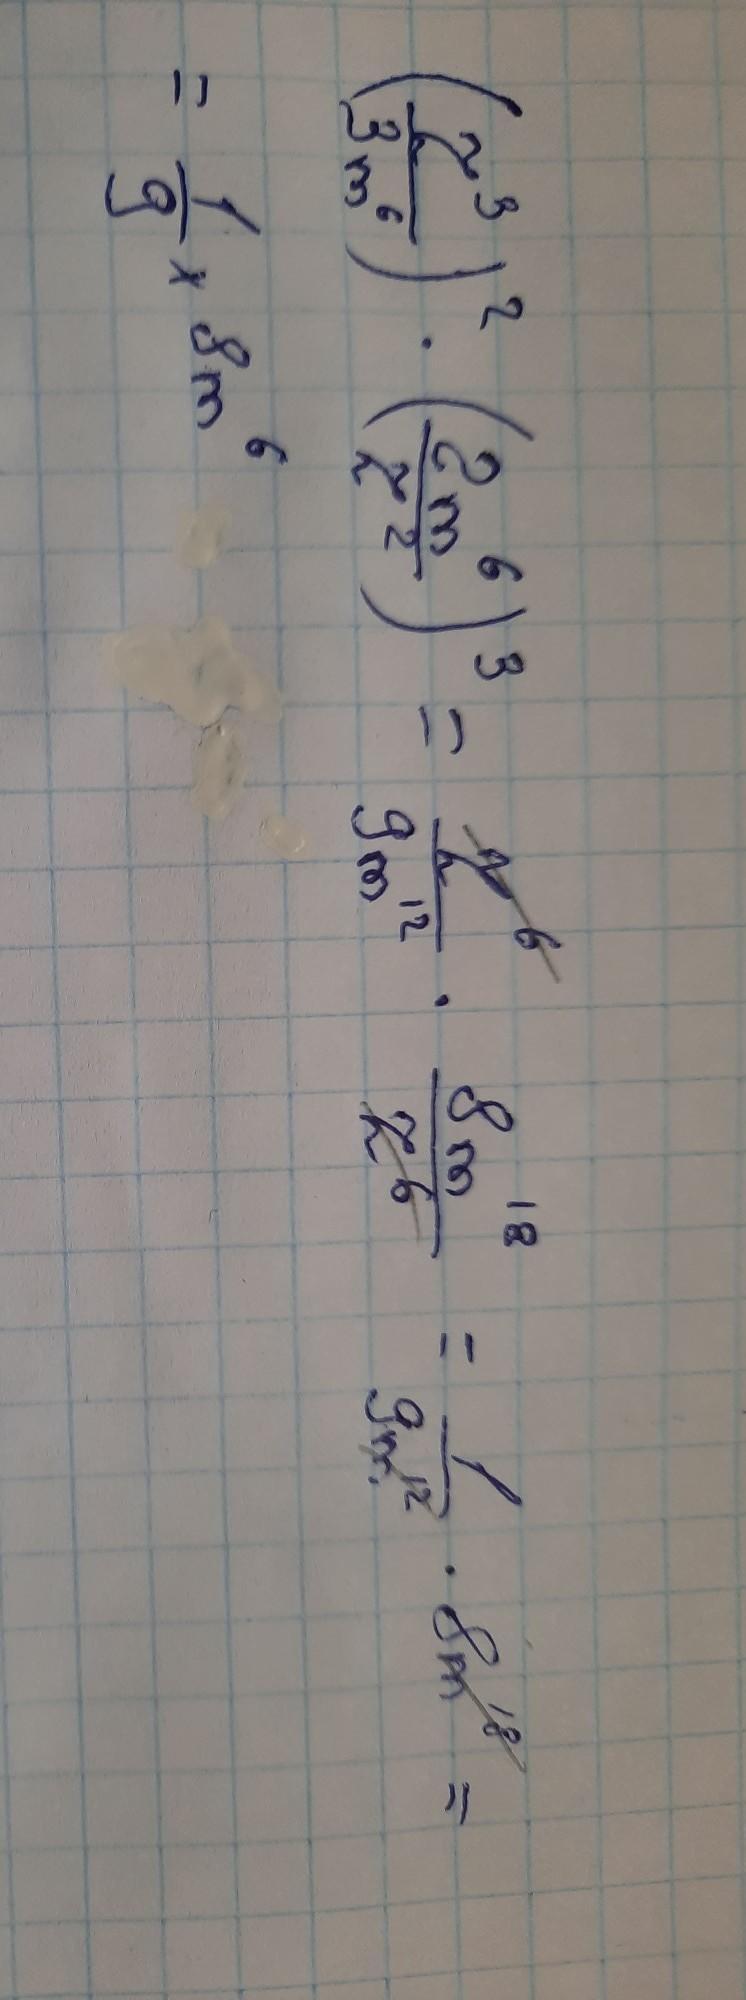 (z³/3m⁶)² · (2m⁶/z²)³ = z⁶/9m¹² · 8m¹⁸/z⁶ = 1/9m¹² · 8m¹⁸ =
= 1/9 × 8m⁶